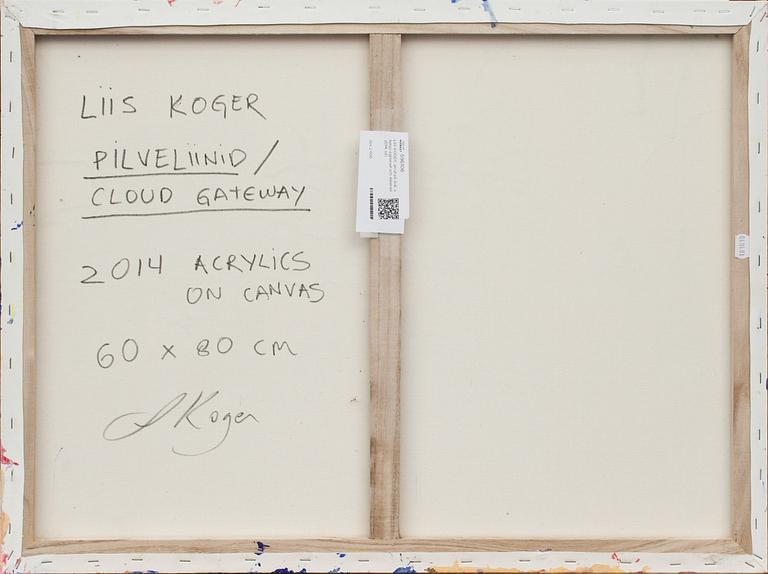 LIIS KOGER
PILVELIINID /
CLOUD GATEWAY
2014 ACRYLICS
ON CANVAS
60 x 80 CM
LKoger